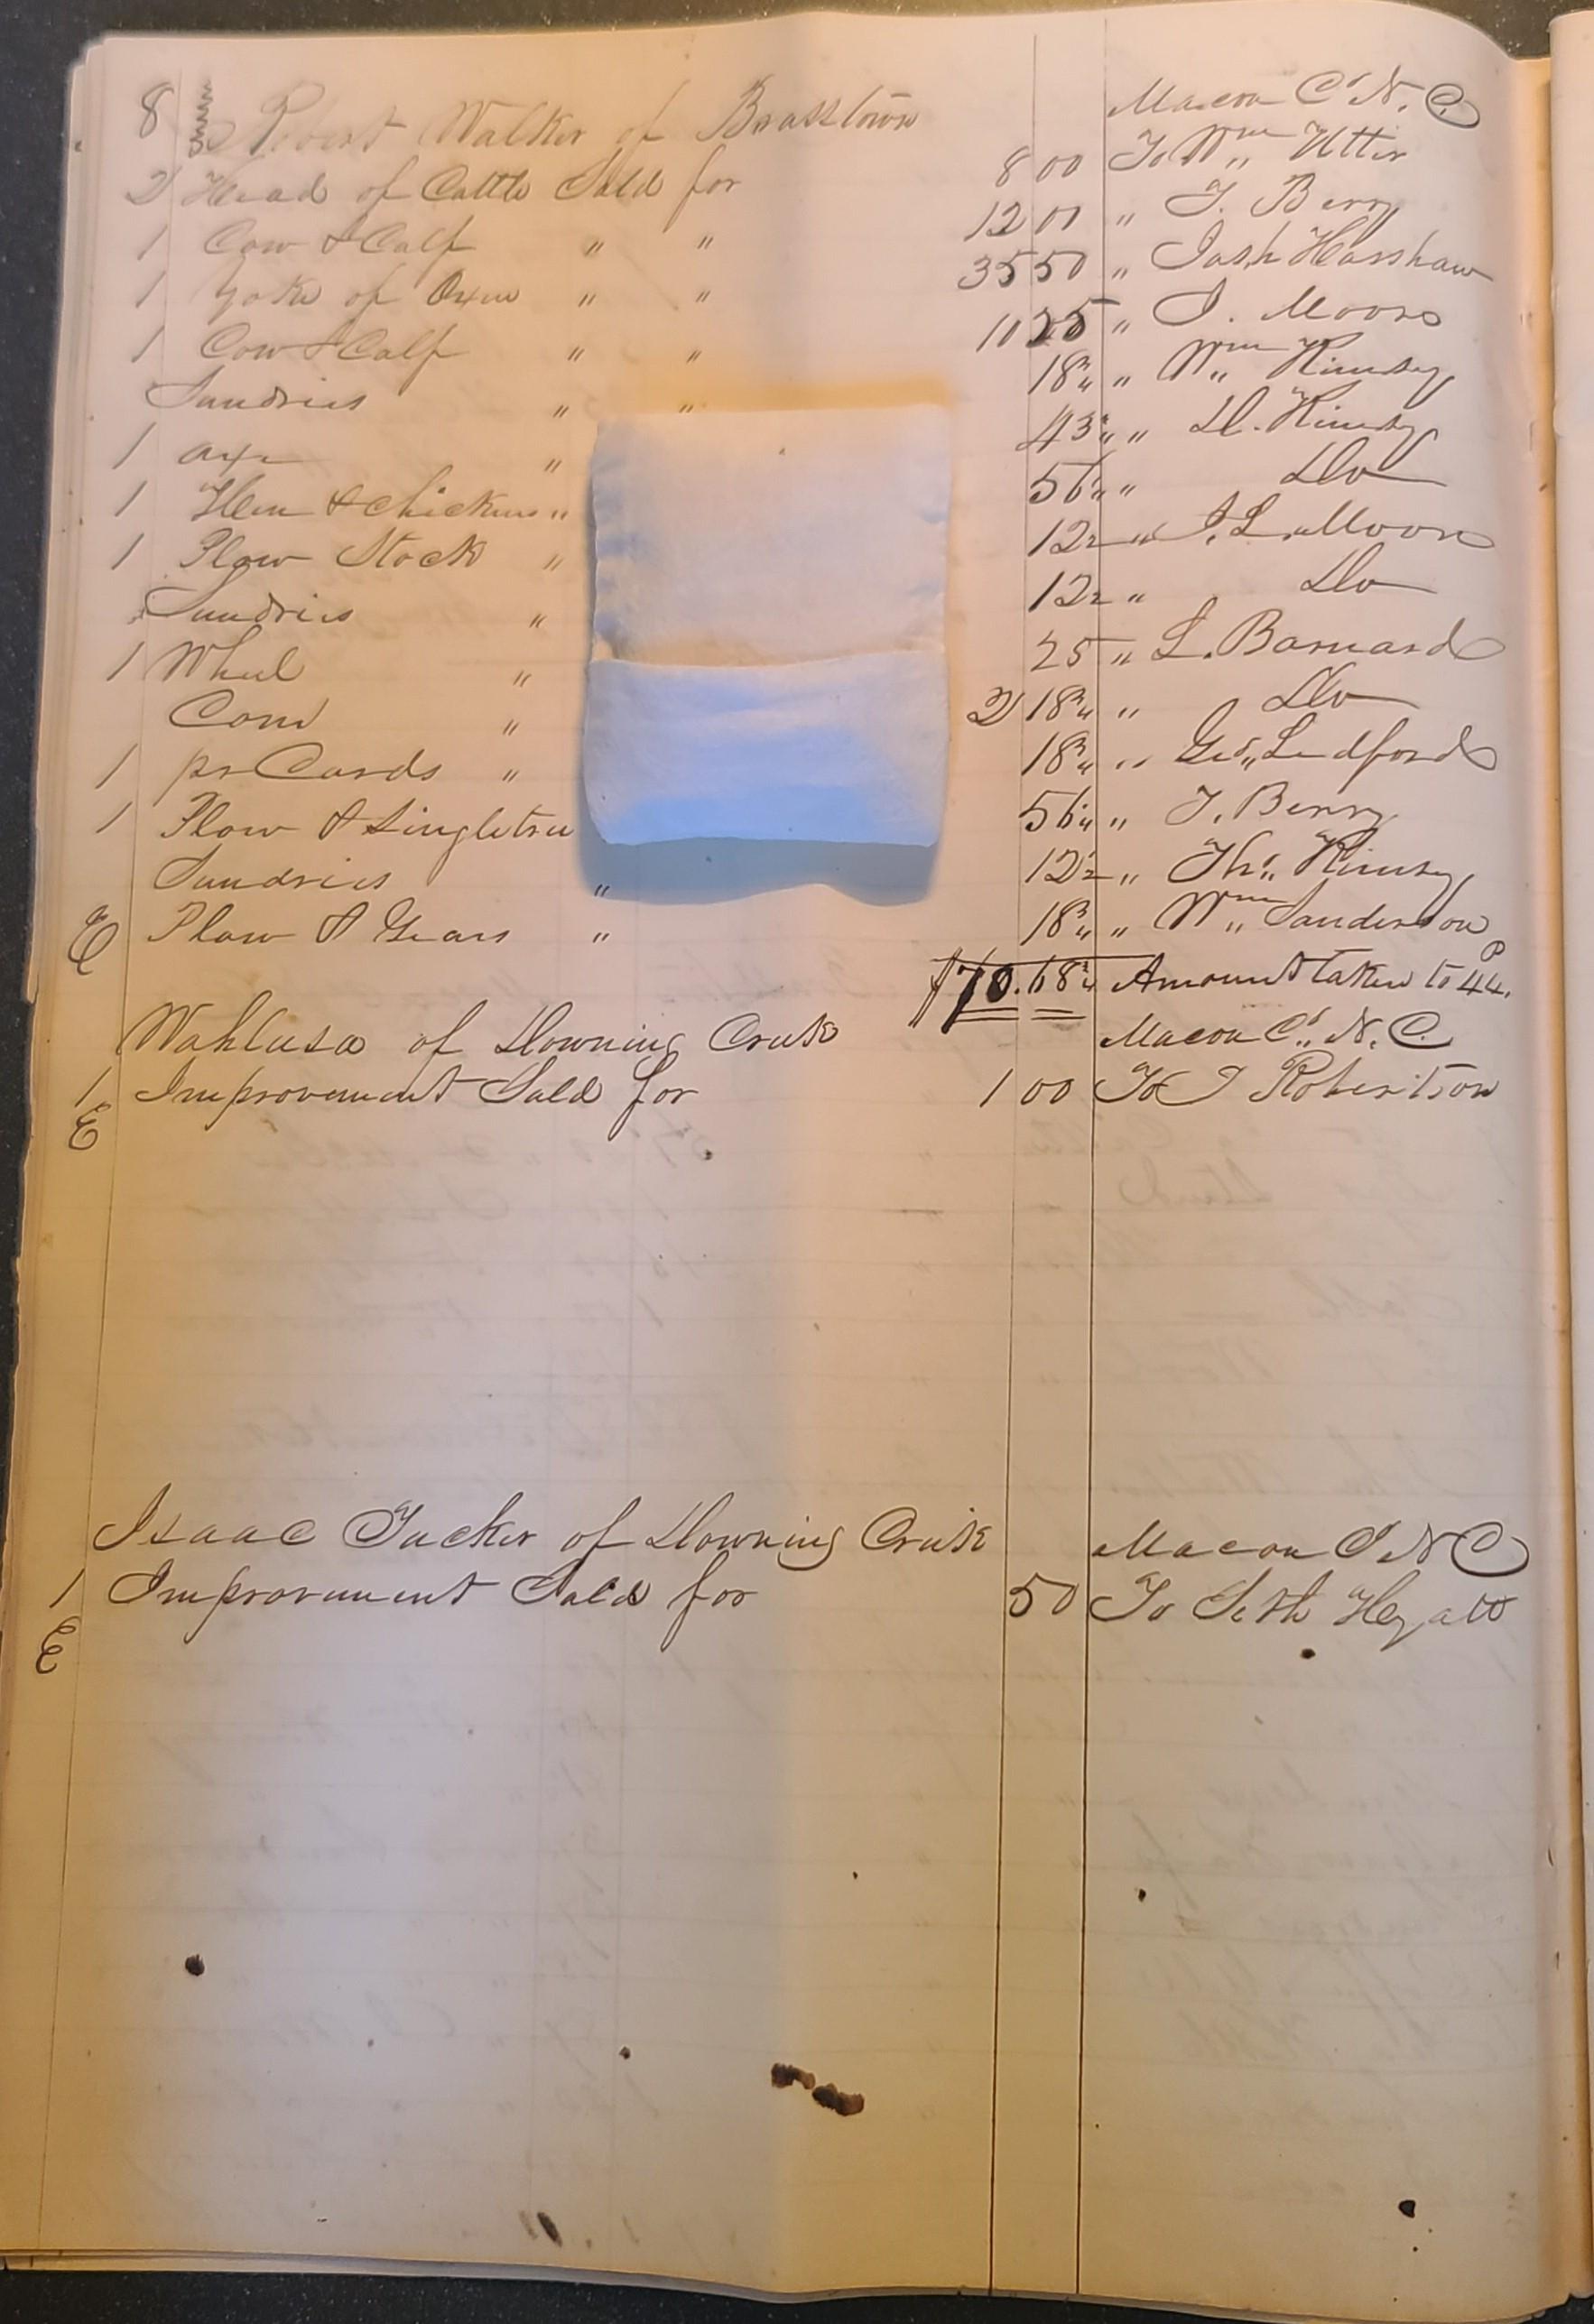 8 Robert Walker of Brasstown Macon Co N. C.
2 Head of Cattle Sold for 8 00 To Wm Utter
1 Cow & Calf " " 12 00 " T. Berry
1 Yoke of Oxen " " 35 50 " Josh Harshaw
1 Cow & Calf " " 10 25 " I. Moore
Sundries " " 18¾ " Wm Kimsey
1 axe " 43¾ " D. Kimsey
1 Hen & chickens " 56¼ " Do
1 Plow Stock " 12½ " I. L. Moore
Sundries " 12½ " Do
1 Wheel " 25 " L. Barnard
Corn " 2 18¾ " Do
1 pr Cards " 18¾ " Geo Ledford
1 Plow & Singletree 56¼ " T. Berry
Sundries " 12½ " Thos Kimsey
E Plow & Gears " 18¾ " Wm Sanderson
$70.68¾ Amount taken to P 44.
Wahlusa of Downing Creek Macon Co N. C.
1 Improvement Sold for 1 00 To I Robertson
E
Isaac Tucker of Downing Creek Macon Co N C
1 Improvement Sold for 50 To Seth Hyatt
E